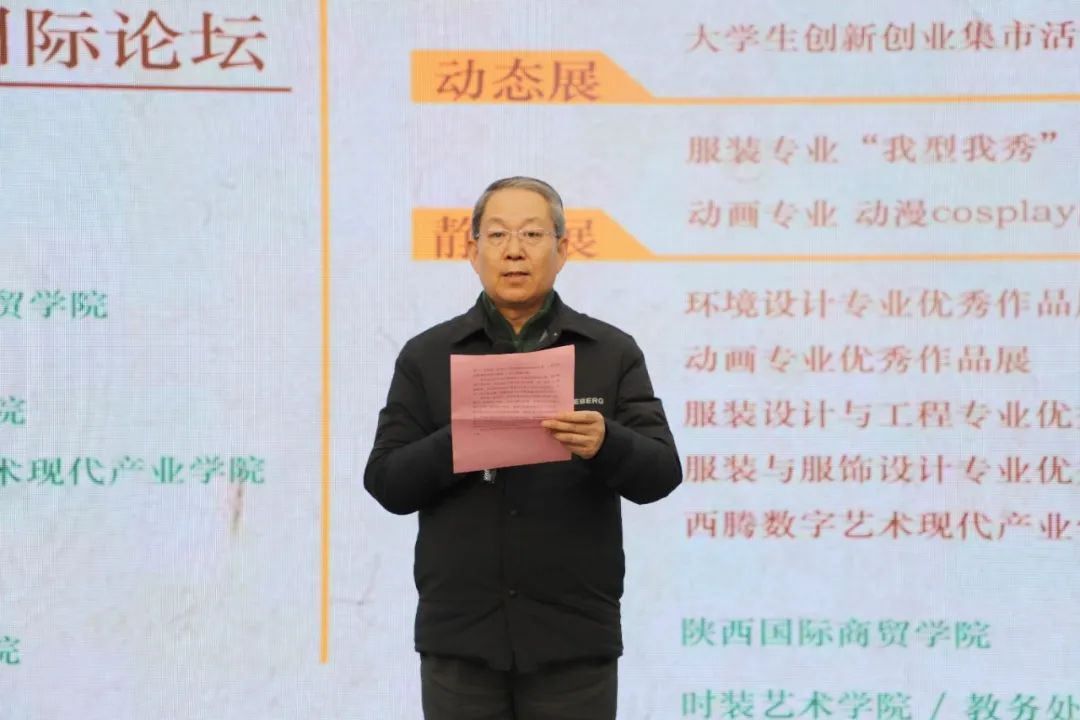 际论坛
贸学院
院
术现代产业学院
院
大学生创新创业集市活
动态展
服装专业“我型我秀”
动画专业 动漫cosplay
静 展
环境设计专业优秀作品
动画专业优秀作品展
服装设计与工程专业优
服装与服饰设计专业优
西腾数字艺术现代产业
陕西国际商贸学院
时装艺术学院 / 教务处
EBERG